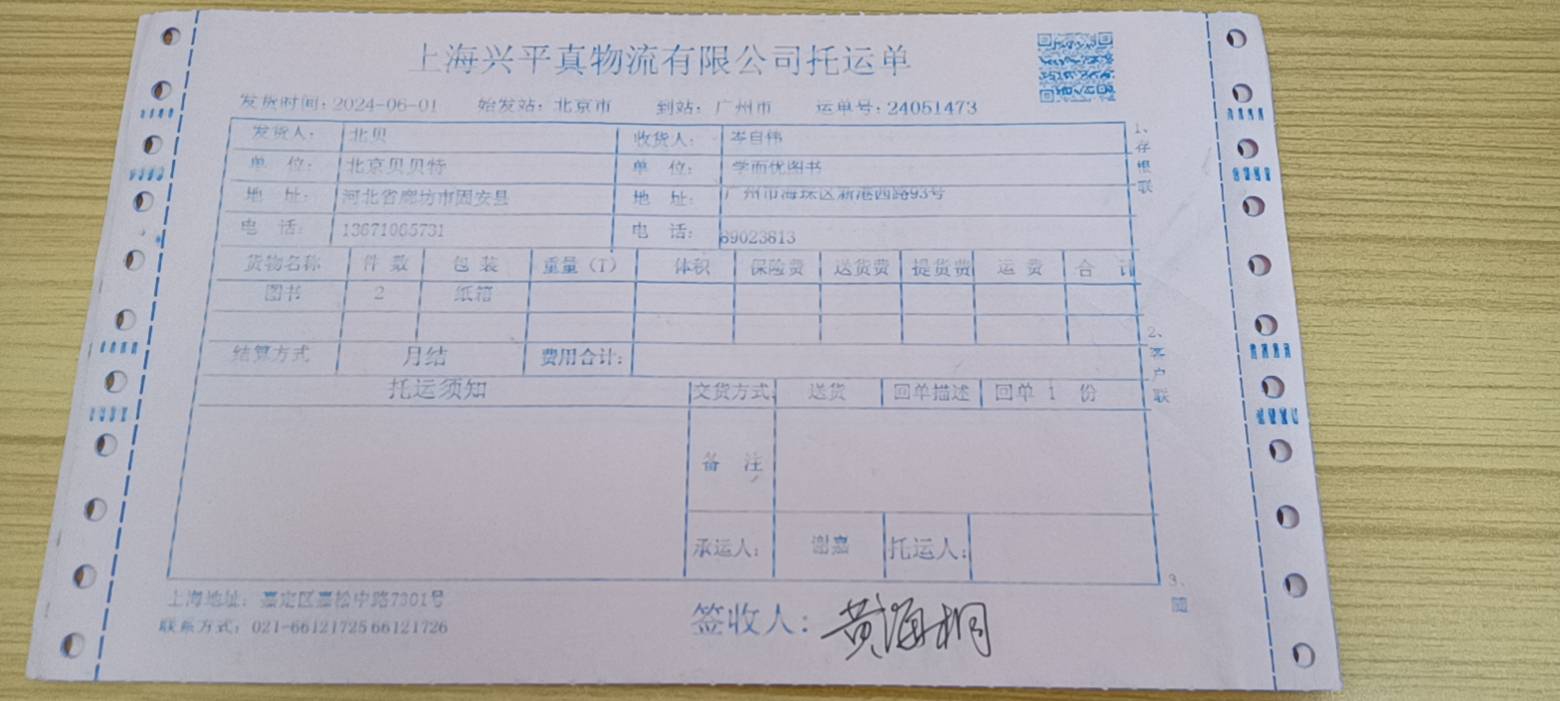 上海兴平真物流有限公司托运单
发货时间：2024-06-01 始发站：北京市 到站：广州市 运单号：24051473
发货人： 北贝 收货人： 岑自伟
单 位： 北京贝贝特 单 位： 学而优图书
地 址： 河北省廊坊市固安县 地 址： 广州市海珠区新港西路93号
电 话： 13671065731 电 话： 89023813
货物名称 件 数 包 装 重量（T） 体积 保险费 送货费 提货费 运 费 合 计
图书 2 纸箱
结算方式 月结 费用合计：
托运须知 交货方式 送货 回单描述 回单 1 份
备 注
承运人： 谢嘉 托运人：
上海地址：嘉定区嘉松中路7301号
联系方式：021-66121725 66121726
签收人：黄海桐
1、存根联
2、客户联
3、随